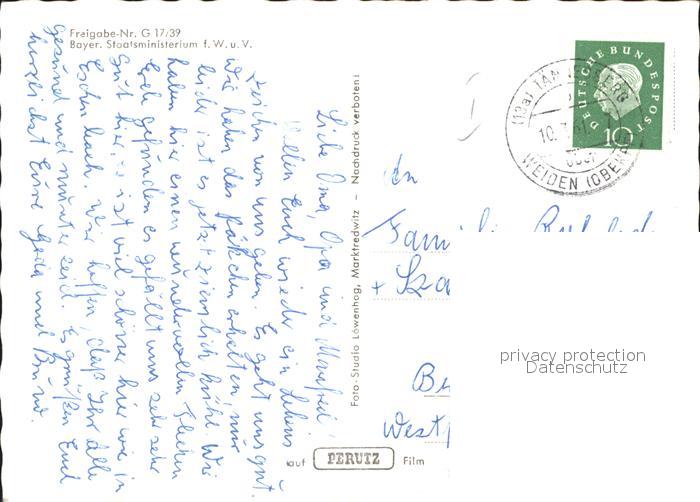 Freigabe-Nr. G 17/39
Bayer. Staatsministerium f. W. u. V.
Liebe Oma, Opa und Manfred,
wollen Euch wieder ein Lebens
zeichen von uns geben. Es geht uns gut.
Wir haben das Päckchen erhalten, nur
leider ist es jetzt ziemlich kühl. Wir
haben hier einen wundervollen Flecken
Erde gefunden es gefällt uns sehr sehr
gut hier, es ist viel schöner hier wie in
Eschenbach. Wir hoffen, daß Ihr alle
gesund und munter seid. Es grüßen Euch
herzlichst Eure Gerda und Bruno.
Foto-Studio Löwenhag, Marktredwitz - Nachdruck verboten!
auf PERUTZ Film
DEUTSCHE BUNDESPOST
10
(13a) TÄNNESBERG
10.7.61
über
WEIDEN (OBERPF
An
Familie
+
Westf
privacy protection
Datenschutz